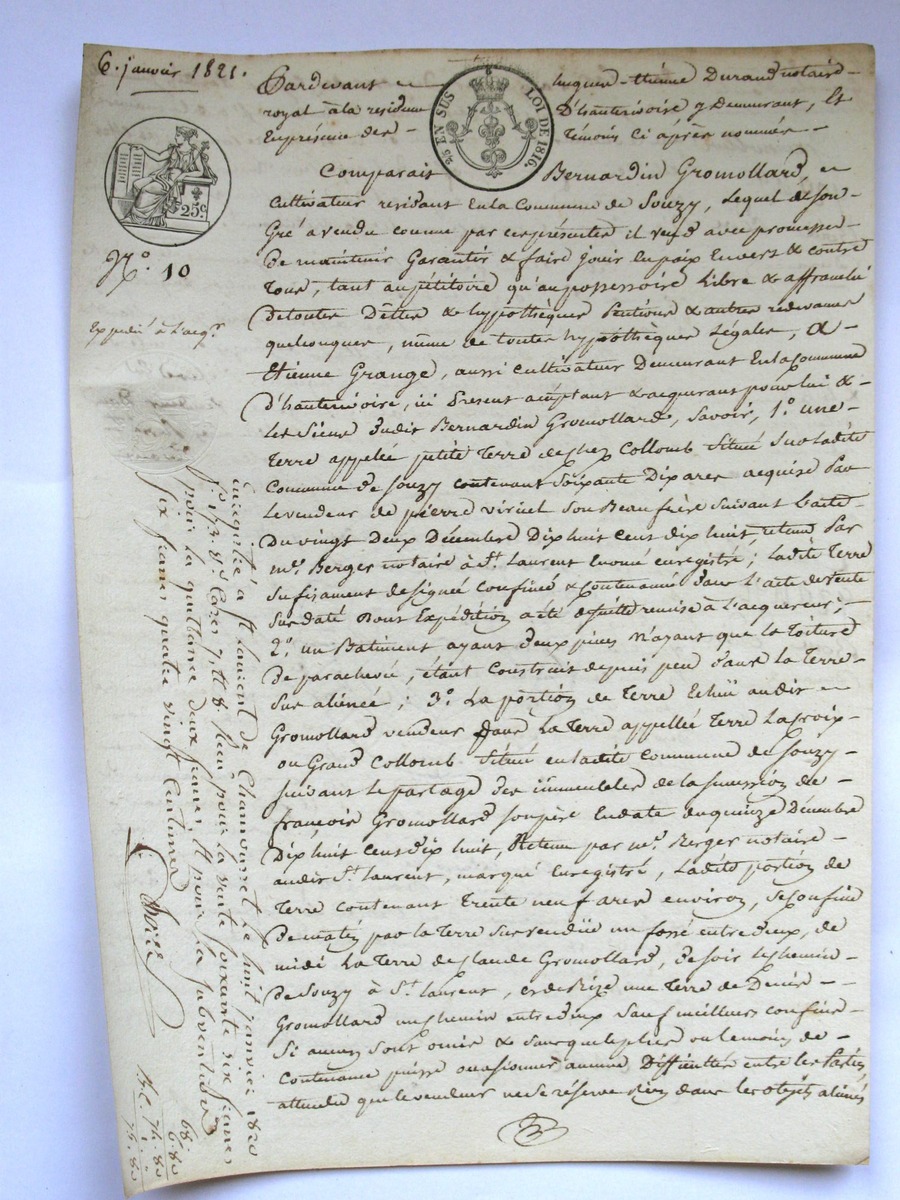 6. janvier 1821.
Pardevant hugues-étiènne Durand notaire
royal à la residence D'hauterivoire y demeurant, Et
En présence des Témoins Ci après nommés
25 EN SUS LOI DE 1816.
25c
N.o 10
Expedié à L'acqr.
Comparait Bernardin Gromollard,
Cultivateur residant En la Commune de Souzy, Lequel de son
Gré a vendu comme par ces présentes il vend avec promesse
De maintenir Garantir & faire jouir en paix Envers & contre
Tous, tant au pétitoire qu'au possessoire Libre & affranchi
de toutes Dettes & hypothèques pentions & autres redevances
quelconques, même de toutes hypothèques Légales, A
Etienne Grange, aussi Cultivateur Demeurant En la Commune
d'hauterivoire, ici Present acceptant & acquerant pour lui &
Les Siens dudit Bernardin Gromollard, Savoir, 1.o une
Terre appelée petite Terre de chez Collomb Située Sur ladite
Commune de Souzy contenant Soixante Dix ares acquise Par
Le vendeur de pierre viricel Son Beau frère Suivant L'acte
Du vingt Deux Décembre Dix huit Cent dix huit, retenu Par
me. Berger notaire à St. Laurent Enoncé enregistré; Ladite Terre
Sufisament designée confinée & contenancée dans L'acte de vente
Sus daté Dont Expédition a été de suitte remise à L'acquereur;
2.o un Batiment ayant deux pièces n'ayant que la Toiture
De parachevée, étant Construit depuis peu dans la Terre
Sus aliénée; 3.o La portion de Terre Echüe audit
Gromollard vendeur Dans La Terre appellée Terre Lacroix
ou Grand Collomb Située en ladite Commune de Souzy
suivant Le partage des immeubles de la succession de
françois Gromollard son père En date du quinze Décembre
Dix huit Cent dix huit, Retenu par me. Berger notaire
audit St. Laurent, marqué Enregistré, Ladite portion de
Terre contenant Trente neuf ares environ, Se Confine
De matin par la Terre Sus vendüe un fossé entre deux, de
midi La Terre de Claude Gromollard, de soir Le chemin
De Souzy à St. Laurent, et de Bize une Terre de Denis
Gromollard un chemin entre deux Sauf meilleurs confins
Si aucun Sont omis & sans que le plus ou le moins de
Contenance puisse occasionner aucune Difficultés entre les Parties
attendu que le vendeur ne se réserve Rien dans les objets aliénés
Enregistré à St. Laurent de Chamousset le huit janvier 1821
f. 173. Ro. Cases 7, & 8 Reçu pour la vente soixante six francs
pour la quittance deux francs, Et pour la subvention
six francs quatre vingt Centimes
68.
6.80
74.80